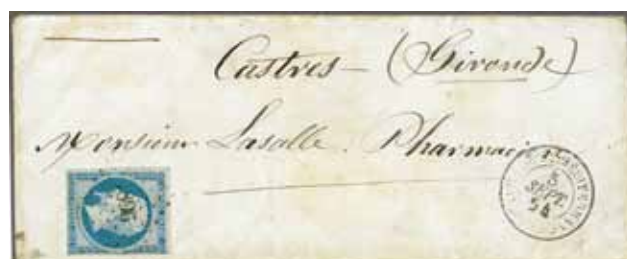 Castres - (Gironde)
Monsieur Lasalle. Pharmacie
5
SEPT.
54